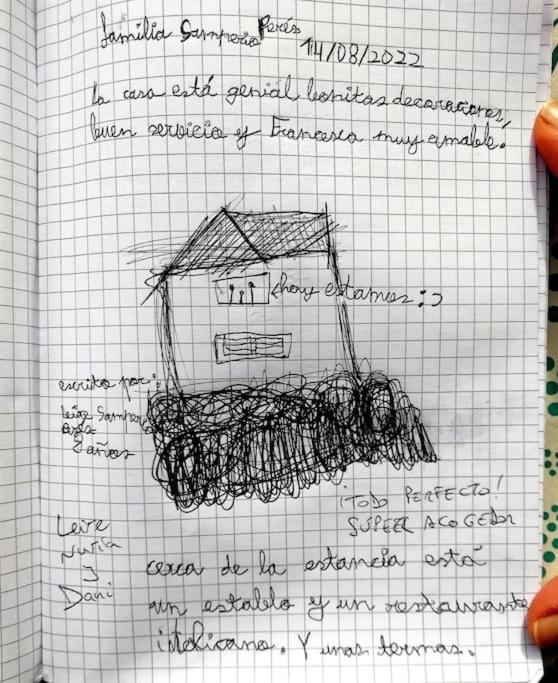 familia Samperio Perés
14/08/2022
la casa está genial bonitas decoraciones,
buen servicio y Francesca muy amable.
estamos :)
escrito por:
leire Samperio
Perés
años
¡TODO PERFECTO!
SÚPER ACOGEDOR
Leire
Nuria
y
Dani
cerca de la estancia está
un establo y un restaurante
. Y unas termas.